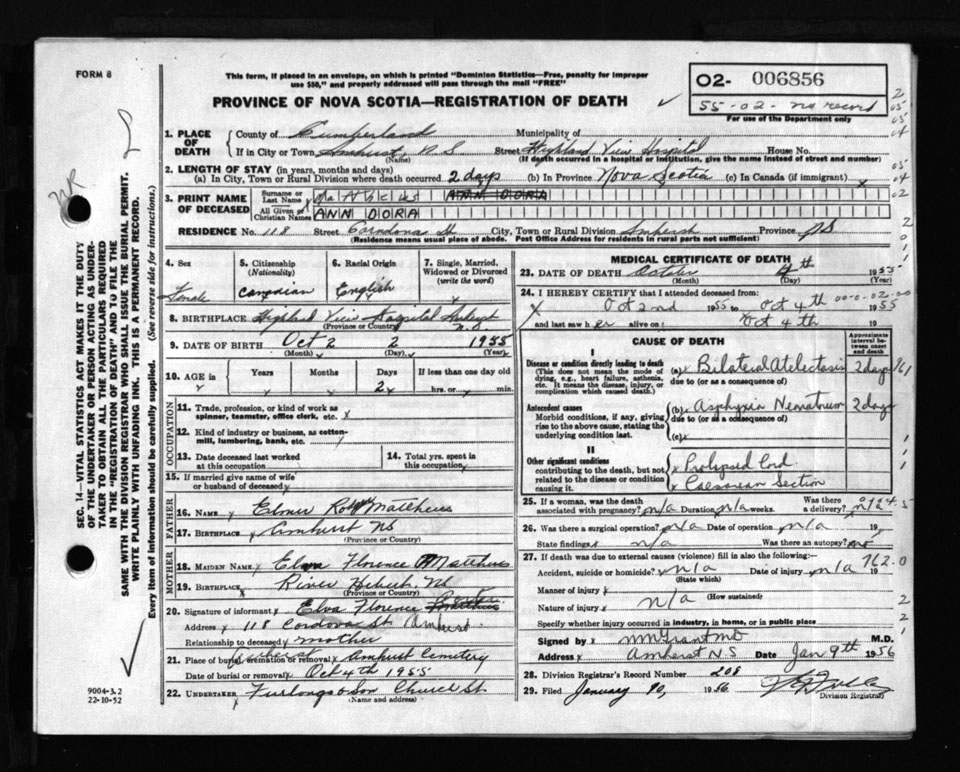 FORM 8
This form, if placed in an envelope, on which is printed "Dominion Statistics—Free, penalty for improper
use $50," and properly addressed will pass through the mail "FREE"
PROVINCE OF NOVA SCOTIA—REGISTRATION OF DEATH
O2- 006856
55-02- no record
For use of the Department only
SEC. 14—VITAL STATISTICS ACT MAKES IT THE DUTY
OF THE UNDERTAKER OR PERSON ACTING AS UNDER-
TAKER TO OBTAIN ALL THE PARTICULARS REQUIRED
IN THE "REGISTRATION OF DEATH" AND TO FILE THE
SAME WITH THE DIVISION REGISTRAR WHO SHALL ISSUE THE BURIAL PERMIT.
WRITE PLAINLY WITH UNFADING INK. THIS IS A PERMANENT RECORD.
Every item of information should be carefully supplied. (See reverse side for instructions.)
1. PLACE OF DEATH
County of Cumberland Municipality of
If in City or Town Amherst, N S Street Highland View Hospital House No.
(Name) (If death occurred in a hospital or institution, give the name instead of street and number)
2. LENGTH OF STAY (in years, months and days)
(a) In City, Town or Rural Division where death occurred 2 days (b) In Province Nova Scotia (c) In Canada (if immigrant) x
3. PRINT NAME OF DECEASED
Surname or Last Name ANN DORA
All Given or Christian Names ANN DORA
RESIDENCE No. 118 Street City, Town or Rural Division Amherst Province NS
(Residence means usual place of abode. Post Office Address for residents in rural parts not sufficient)
4. Sex Female
5. Citizenship (Nationality) Canadian
6. Racial Origin English
7. Single, Married, Widowed or Divorced (write the word)
8. BIRTHPLACE Highland View Hospital Amherst N.S.
(Province or Country)
9. DATE OF BIRTH Oct 2 2 1955
(Month) (Day) (Year)
10. AGE in Years Months Days 2 If less than one day hrs. or min.
OCCUPATION
11. Trade, profession, or kind of work as spinner, teamster, office clerk, etc. x
12. Kind of industry or business, as cotton-mill, lumbering, bank, etc.
13. Date deceased last worked at this occupation
14. Total yrs. spent in this occupation
15. If married give name of wife or husband of deceased
FATHER
16. NAME Elmer Roy Matthews
17. BIRTHPLACE Amherst NS
(Province or Country)
MOTHER
18. MAIDEN NAME Elva Florence Matthews
19. BIRTHPLACE River Hebert, NS
(Province or Country)
20. Signature of informant Elva Florence
Address 118 Cordova St Amherst
Relationship to deceased mother
21. Place of burial, cremation or removal Amherst Cemetery
Date of burial or removal Oct 4th 1955
22. UNDERTAKER Furlong & Son Church St
(Name and address)
9004-3.2
22-10-52
MEDICAL CERTIFICATE OF DEATH
23. DATE OF DEATH October 4th 1955
(Month) (Day) (Year)
24. I HEREBY CERTIFY that I attended deceased from:
Oct 2nd 1955 to Oct 4th 1955
and last saw her alive on Oct 4th 19
CAUSE OF DEATH
Approximate interval between onset and death
I
Disease or condition directly leading to death
(This does not mean the mode of dying, e.g., heart failure, asthenia, etc. It means the disease, injury, or complication which caused death.)
(a) Bilateral Atelectasis 2 days
due to (or as a consequence of)
Antecedent causes
Morbid conditions, if any, giving rise to the above cause, stating the underlying condition last.
(b) Asphyxia Neonatorum 2 days
due to (or as a consequence of)
(c)
II
Other significant conditions
contributing to the death, but not related to the disease or condition causing it.
Prolapsed Cord
Caesarean Section
25. If a woman, was the death associated with pregnancy? n/a Duration n/a weeks. Was there a delivery? n/a
26. Was there a surgical operation? n/a Date of operation n/a 19
State findings n/a Was there an autopsy? no
27. If death was due to external causes (violence) fill in also the following:— 762.0
Accident, suicide or homicide? n/a Date of injury n/a 19
(State which)
Manner of injury
(How sustained)
Nature of injury n/a
Specify whether injury occurred in industry, in home, or in public place
Signed by M M Grant MD M.D.
Address Amherst N.S Date Jan 9th 1956
28. Division Registrar's Record Number 208
29. Filed January 10, 1956
Division Registrar